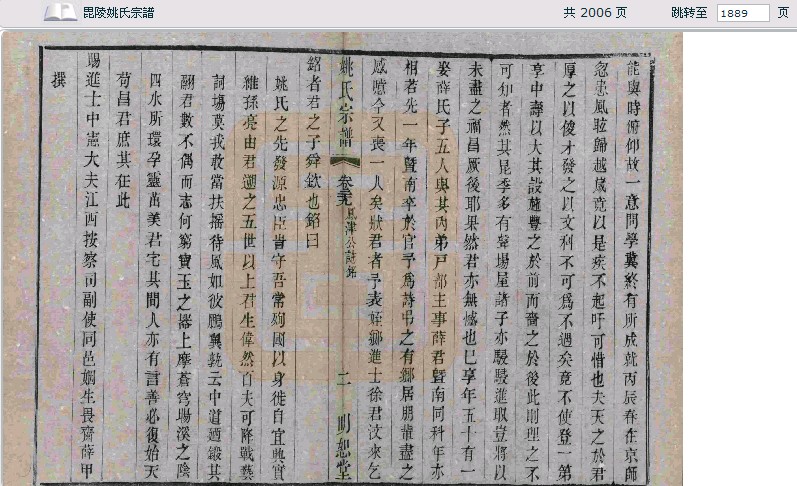 毘陵姚氏宗譜
共 2006 页
跳转至 1889 页
能與時俯仰故一意問學冀終有所成就丙辰春在京師
忽患風眩歸越歲竟以是疾不起吁可惜也夫天之於君
厚之以俊才發之以文利不可為不遇矣竟不使登一第
享中壽以大其設施豐之於前而嗇之於後此則理之不
可知者然其昆季多有聲場屋諸子亦駸駸進取豈將以
未盡之福昌厥後耶果然君亦無憾也已享年五十有一
娶薛氏子五人與其內弟戶部主事薛君暨南同科年亦
相若先一年暨南卒於官予為詩弔之有鄉居朋輩盡之
感噫今又喪一人矣狀君者予表姪鄉進士徐君汶來乞
姚氏宗譜 卷三九 鳳津公誌銘 二 明恕堂
銘者君之子舜欽也銘曰
姚氏之先發源忠臣昔守吾常殉國以身徙自宜興實
維孫亮由君遡之五世以上君生偉然百夫可降戰藝
詞場莫我敢當扶搖待風如彼鵬翼孰云中道遭鎩其
翮君數不偶而志何窮寶玉之器上摩蒼穹場溪之陰
四水所環孕靈茁美君宅其間人亦有言善必復始天
苟昌君庶其在此
賜進士中憲大夫江西按察司副使同邑姻生畏齋薛甲
撰